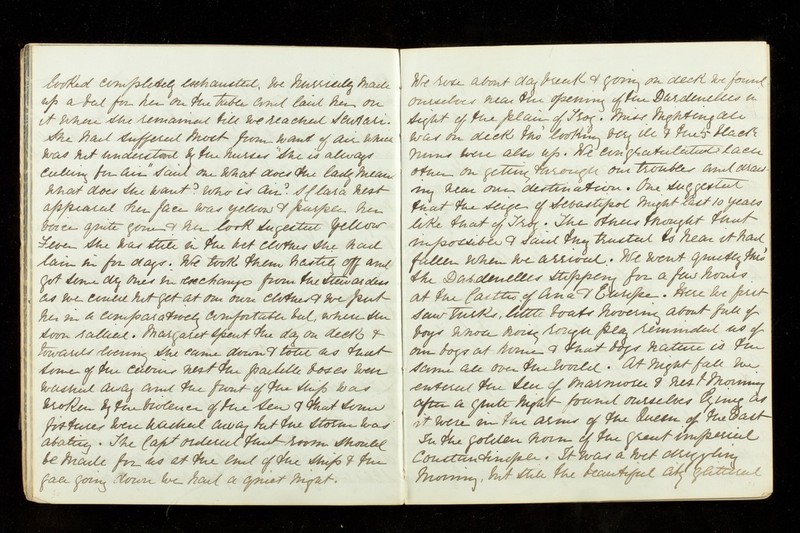 looked completely exhausted. We hurriedly made
up a bed for her on the table and laid her on
it where she remained till we reached Scutari.
She had suffered most from want of air which
was not understood by the nurses "she is always
calling for air" said one "what does the lady mean
what does she want? who is air?" Sr Clara next
appeared her face was yellow & purple her
voice quite gone & her look sugested Yellow
Fever she was still in the wet clothes she had
lain in for days. We took them hastily off and
got some dry ones in exchange from the stewardess
as we could not get at our own clothes & we put
her in a comparatively comfortable bed, where she
soon rallied. Margaret spent the day on deck &
towards evening she came down & told us that
some of the cabins next the paddle boxes were
washed away and the front of the ship was
broken by the violence of the sea & that some
fixtures were washed away but the storm was
abating. The Capt ordered that room should
be made for us at the end of the ship & the
gale going down we had a quiet night.
We rose about daybreak & going on deck we found
ourselves near the opening of the Dardenelles in
sight of the plain of Troy. Miss Nightingale
was on deck tho' looking very ill & the 5 black
nuns were also up. We congratulated each
other on getting through our troubles and draw-
ing near our destination. One suggested
that the seige of Sebastopol might last 10 years
like that of Troy. The others thought that
impossible & said they trusted to hear it had
fallen when we arrived. We went quietly thro'
the Dardenelles stopping for a few hours
at the Castles of Asia & Europe. Here we first
saw Turks, little boats hovering about full of
boys whose noisy rough play reminded us of
our boys at home & that boys nature is the
same all over the world. At night fall we
entered the Sea of Marmora & next morning
after a quite night found ourselves lying as
it were in the arms of the Queen of the East
In the golden horn of the great imperial
Constantinople. It was a wet drizzling
morning, but still the beautiful city glittered